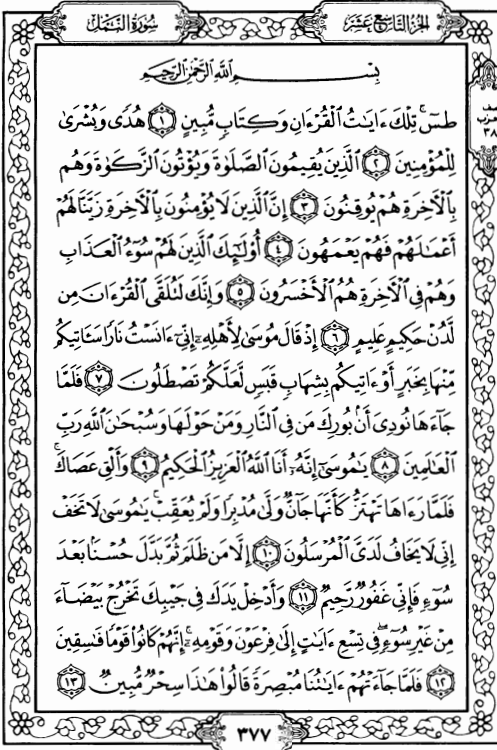 الجزء التاسع عشر
سورة النمل
بِسْمِ ٱللَّهِ ٱلرَّحْمَٰنِ ٱلرَّحِيمِ
طسٓ ۚ تِلْكَ ءَايَٰتُ ٱلْقُرْءَانِ وَكِتَابٍ مُّبِينٍ ١ هُدًى وَبُشْرَىٰ
لِلْمُؤْمِنِينَ ٢ ٱلَّذِينَ يُقِيمُونَ ٱلصَّلَوٰةَ وَيُؤْتُونَ ٱلزَّكَوٰةَ وَهُم
بِٱلْءَاخِرَةِ هُمْ يُوقِنُونَ ٣ إِنَّ ٱلَّذِينَ لَا يُؤْمِنُونَ بِٱلْءَاخِرَةِ زَيَّنَّا لَهُمْ
أَعْمَٰلَهُمْ فَهُمْ يَعْمَهُونَ ٤ أُو۟لَٰٓئِكَ ٱلَّذِينَ لَهُمْ سُوٓءُ ٱلْعَذَابِ
وَهُمْ فِى ٱلْءَاخِرَةِ هُمُ ٱلْأَخْسَرُونَ ٥ وَإِنَّكَ لَتُلَقَّى ٱلْقُرْءَانَ مِن
لَّدُنْ حَكِيمٍ عَلِيمٍ ٦ إِذْ قَالَ مُوسَىٰ لِأَهْلِهِۦٓ إِنِّىٓ ءَانَسْتُ نَارًا سَـَٔاتِيكُم
مِّنْهَا بِخَبَرٍ أَوْ ءَاتِيكُم بِشِهَابٍ قَبَسٍ لَّعَلَّكُمْ تَصْطَلُونَ ٧ فَلَمَّا
جَآءَهَا نُودِىَ أَنۢ بُورِكَ مَن فِى ٱلنَّارِ وَمَنْ حَوْلَهَا وَسُبْحَٰنَ ٱللَّهِ رَبِّ
ٱلْعَٰلَمِينَ ٨ يَٰمُوسَىٰٓ إِنَّهُۥٓ أَنَا ٱللَّهُ ٱلْعَزِيزُ ٱلْحَكِيمُ ٩ وَأَلْقِ عَصَاكَ ۚ
فَلَمَّا رَءَاهَا تَهْتَزُّ كَأَنَّهَا جَآنٌّ وَلَّىٰ مُدْبِرًا وَلَمْ يُعَقِّبْ ۚ يَٰمُوسَىٰ لَا تَخَفْ
إِنِّى لَا يَخَافُ لَدَىَّ ٱلْمُرْسَلُونَ ١٠ إِلَّا مَن ظَلَمَ ثُمَّ بَدَّلَ حُسْنًۢا بَعْدَ
سُوٓءٍ فَإِنِّى غَفُورٌ رَّحِيمٌ ١١ وَأَدْخِلْ يَدَكَ فِى جَيْبِكَ تَخْرُجْ بَيْضَآءَ
مِنْ غَيْرِ سُوٓءٍ ۖ فِى تِسْعِ ءَايَٰتٍ إِلَىٰ فِرْعَوْنَ وَقَوْمِهِۦٓ ۚ إِنَّهُمْ كَانُوا۟ قَوْمًا فَٰسِقِينَ
١٢ فَلَمَّا جَآءَتْهُمْ ءَايَٰتُنَا مُبْصِرَةً قَالُوا۟ هَٰذَا سِحْرٌ مُّبِينٌ ١٣
٣٧٧